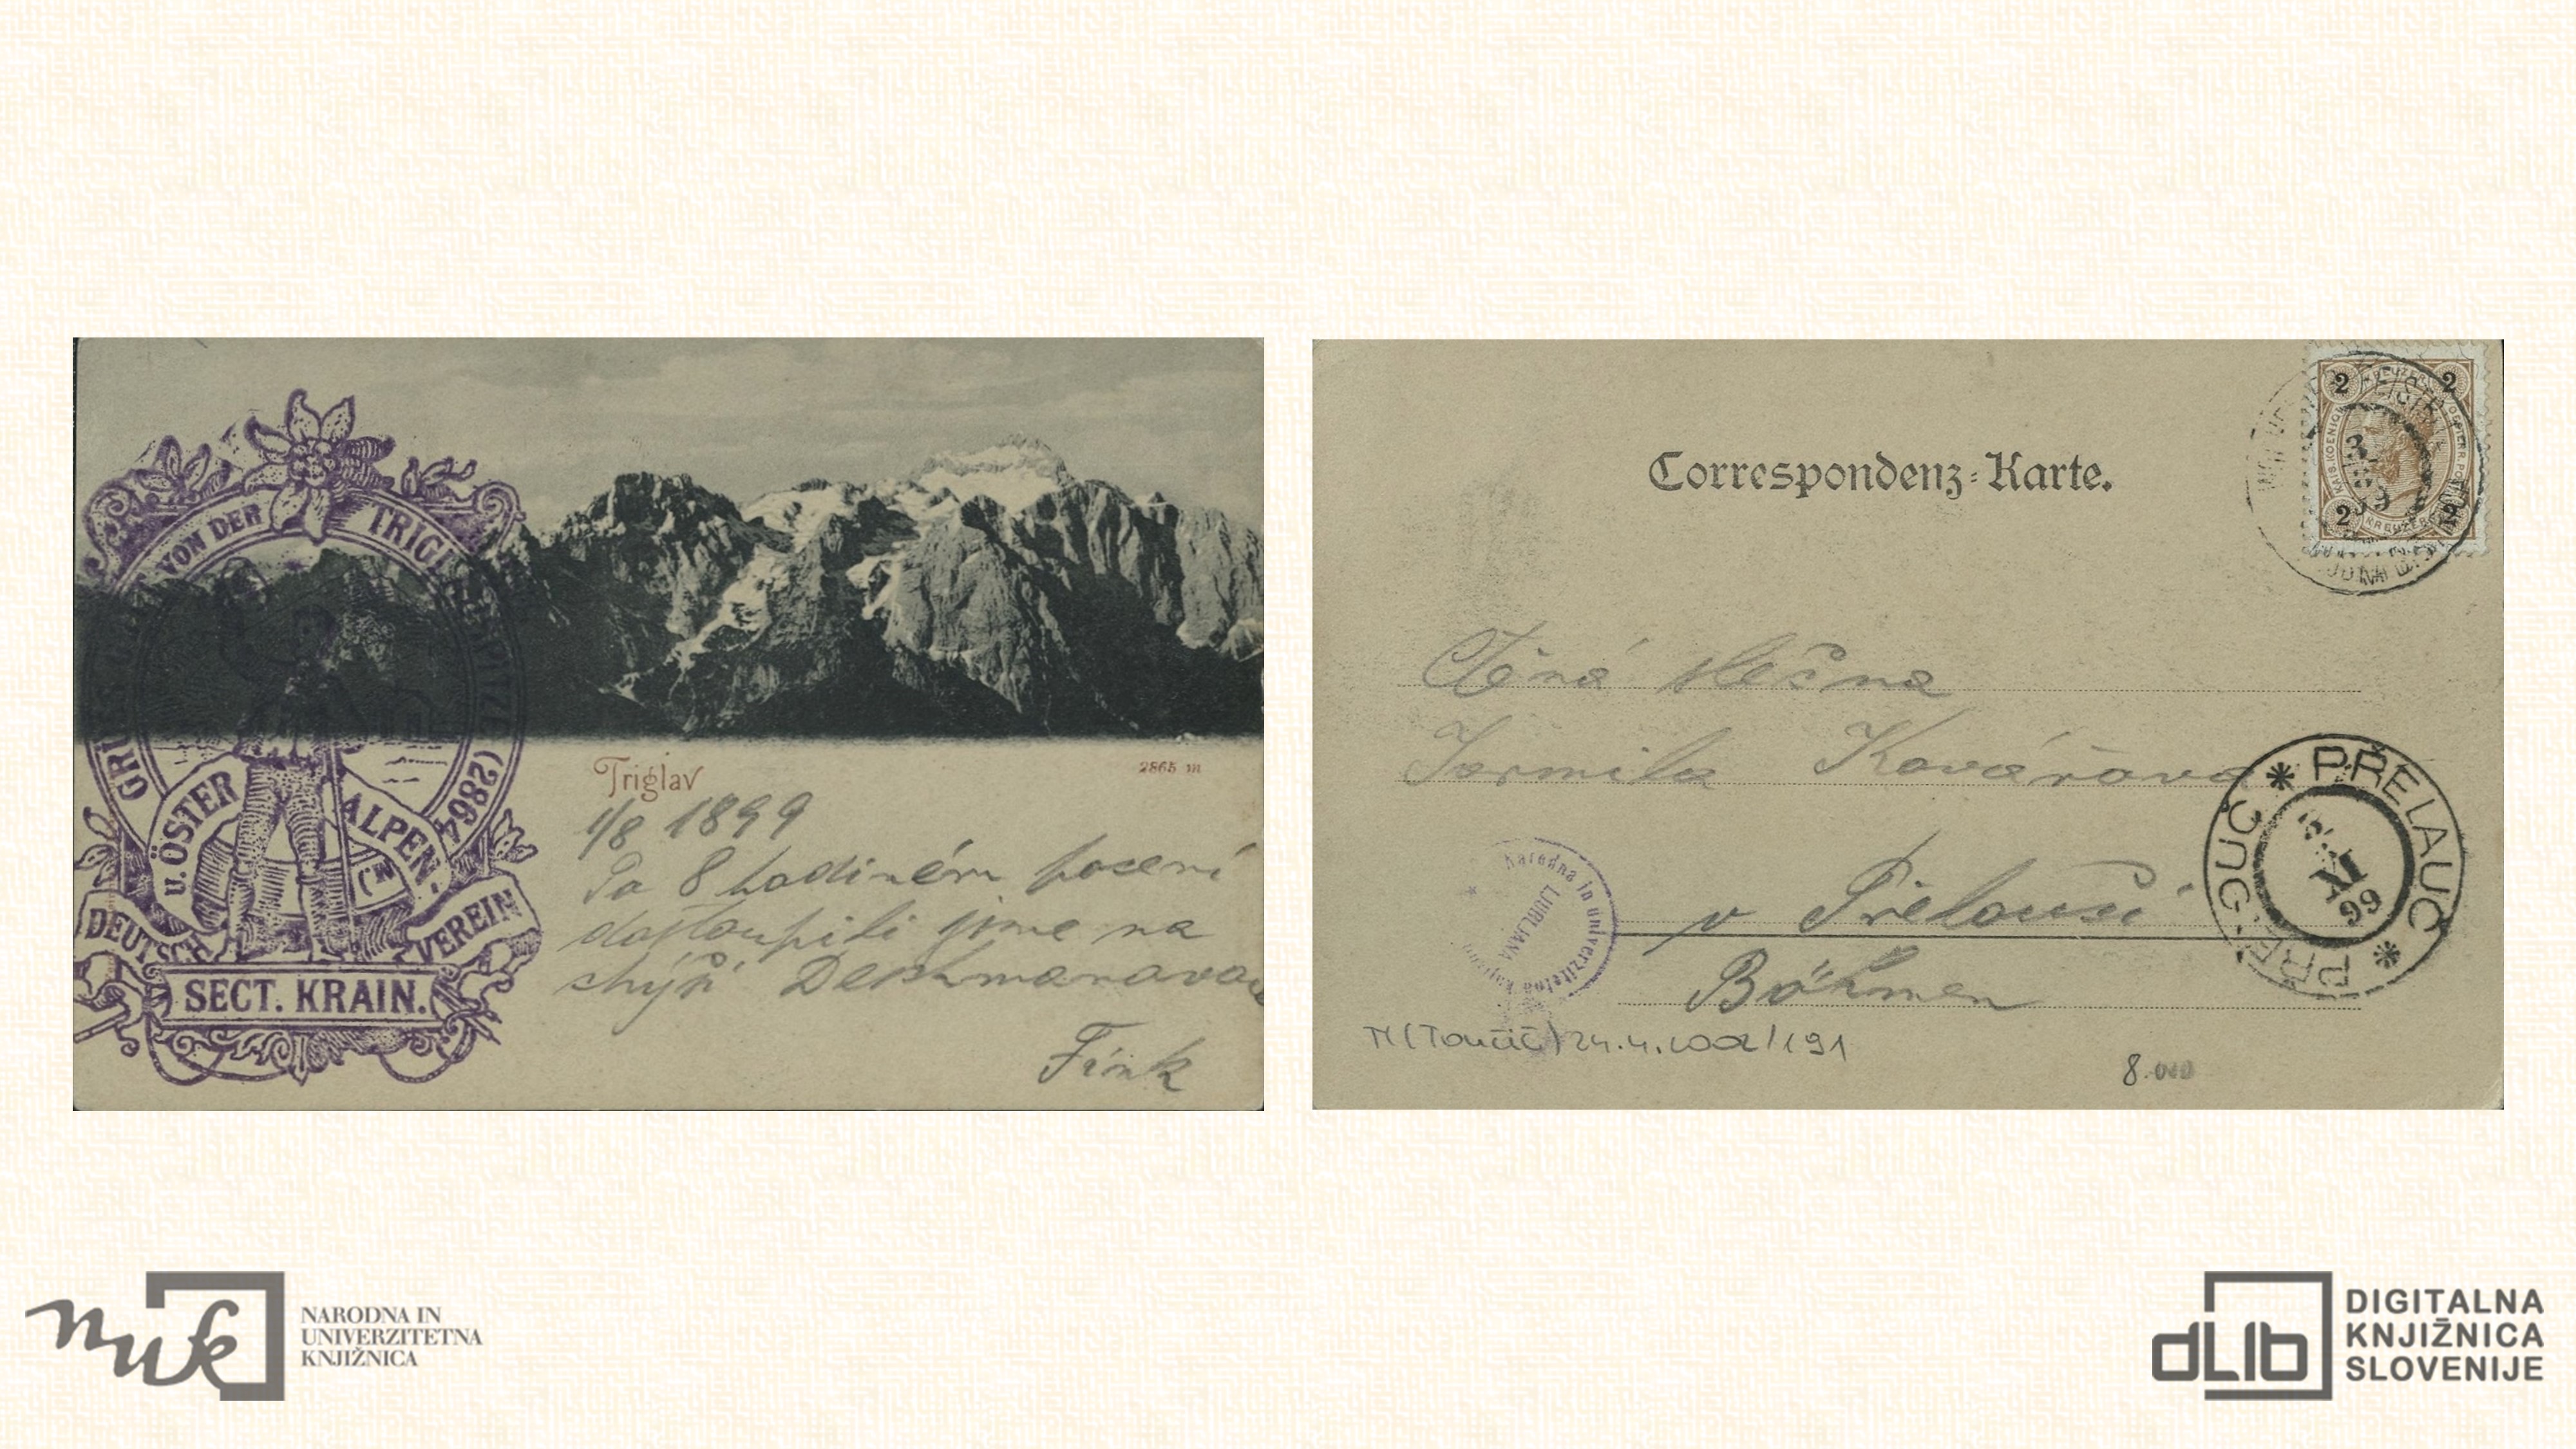 GRUSS VON DER TRIGLAVSPITZE (2864
DEUTSCH. u. ÖSTER ALPEN-VEREIN
SECT. KRAIN.
Triglav
2865 m
1/8 1899
Po 8 hodiném
dostoupili jsme na
chýži
Fink
Correspondenz-Karte.
2 2
KREUZER
2
3
99
Ctěná slečna
Jarmila Kovářova
v Přelouči
Böhmen
PŘELAUČ
PŘELOUČ
99
Narodna in univerzitetna knjižnica
LJUBLJANA
24.4.2002/191
8.000
nuk
NARODNA IN
UNIVERZITETNA
KNJIŽNICA
dLib
DIGITALNA
KNJIŽNICA
SLOVENIJE